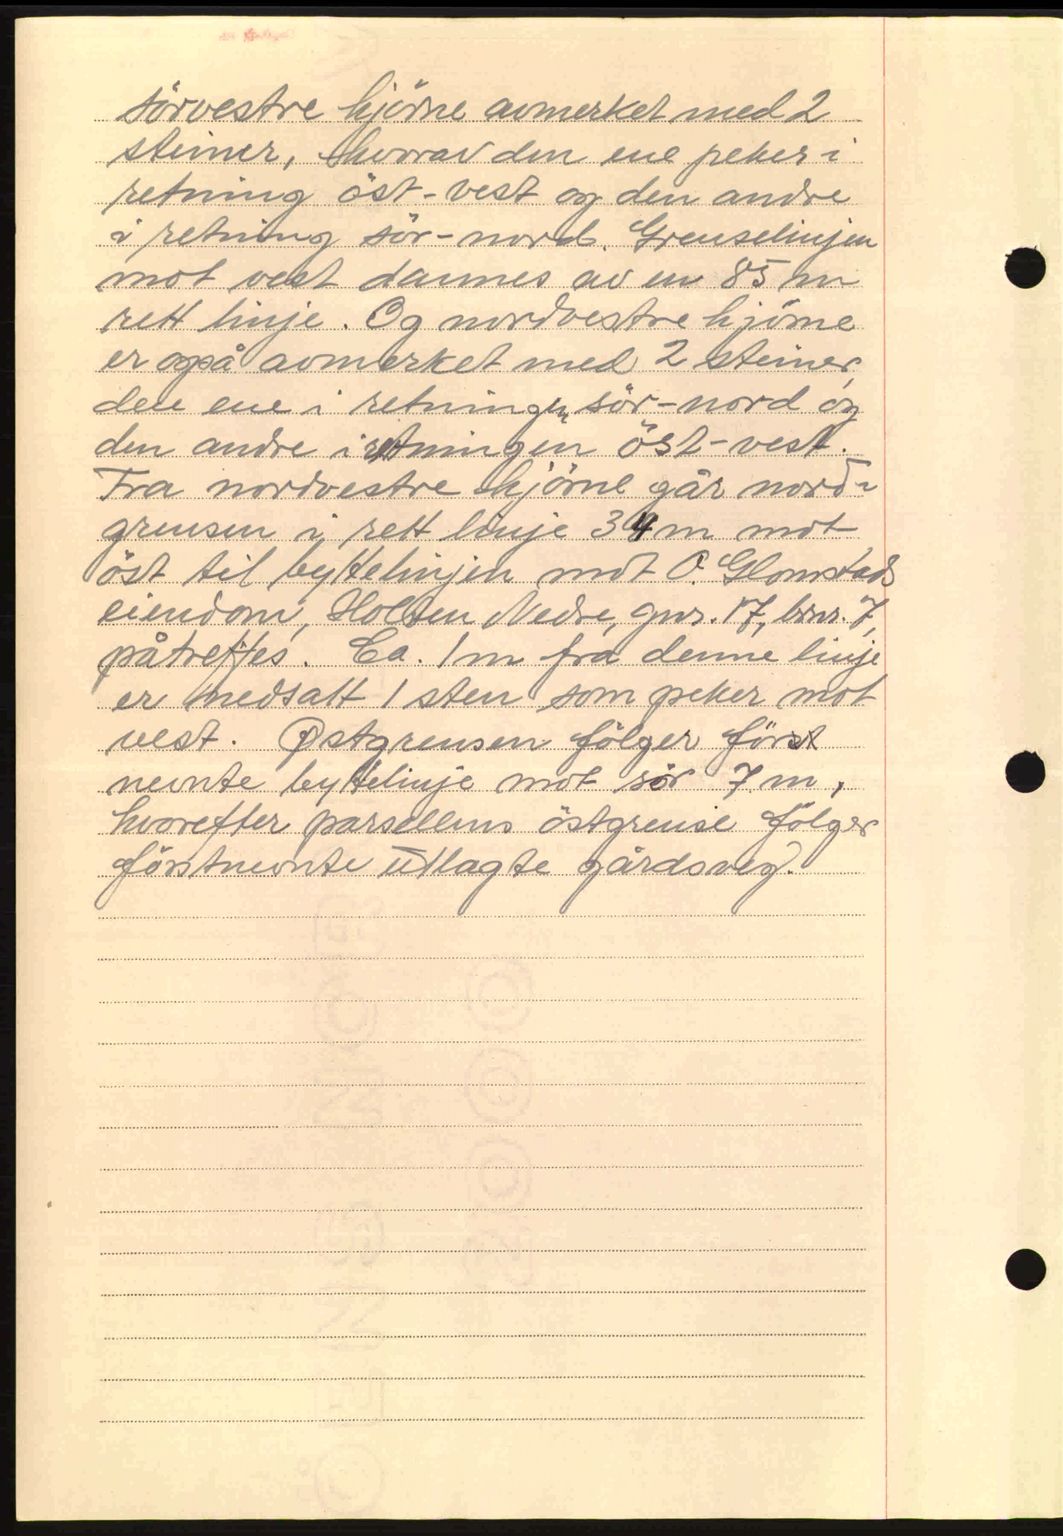 sörvestre hjörne avmerket med 2
steiner, hvorav den ene peker i
retning öst-vest og den andre
i retning sör-nord. Grenselinjen
mot vest dannes av en 85 m
rett linje. Og nordvestre hjörne
er også avmerket med 2 steiner,
den ene i retningen sör-nord og
den andre i retningen öst-vest.
Fra nordvestre hjörne går nord-
grensen i rett linje 34 m mot
öst til byttelinjen mot O. Glomstads
eiendom, Holten Nedre, gnr. 17, brnr. 7,
påtreffes. Ca. 1 m fra denne linje
er nedsatt 1 sten som peker mot
vest. Østgrensen fölger först
nevnte byttelinje mot sör 7 m,
hvorefter parsellens östgrense fölger
förstnevnte utlagte gårdsveg.